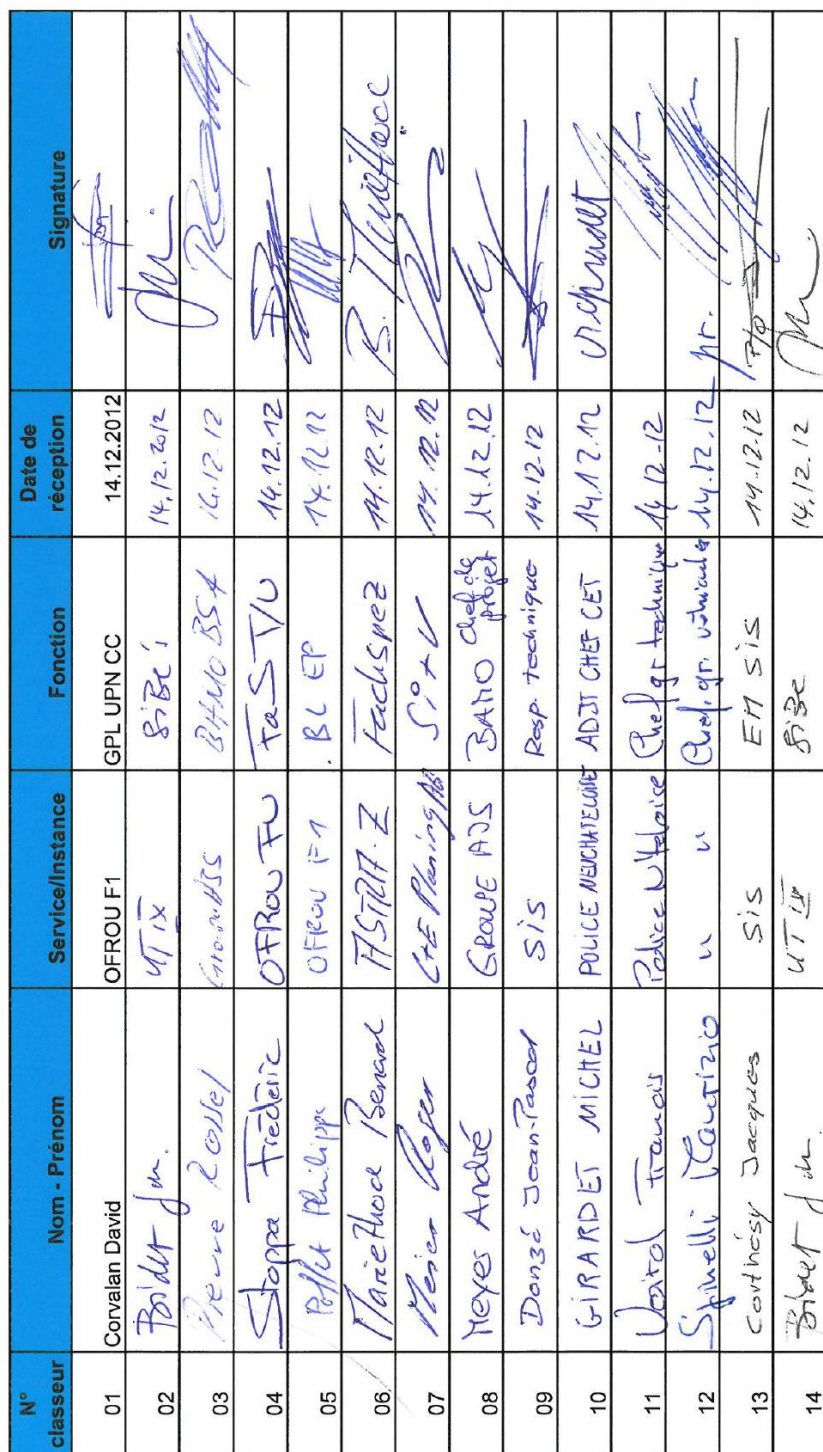 N° classeur Nom - Prénom Service/Instance Fonction Date de réception Signature
01 Corvalan David OFROU F1 GPL UPN CC 14.12.2012
02 UT IX SiBé 14.12.2012
03 Pierre Rossel BAMO BSA 14.12.12
04 Stoppa Frédéric OFROU FU FaS T/U 14.12.12
05 Philippe OFROU F1 BL EP 14.12.12
06 Mariethod Bernard ASTRA-Z Fachspez 14.12.12 B. Mariethod
07 Meier Roger 14.12.12
08 Meyes André GROUPE AJS BAMO Chef de projet 14.12.12
09 Donzé Jean-Pascal SIS Resp. technique 14.12.12
10 GIRARDET MICHEL POLICE NEUCHATELOISE ADJT CHEF CET 14.12.12
11 Francis Police N'teloise Chef gr technique 14 12-12
12 Spinelli Maurizio " " Chef. gr. véhicules 14.12.12 pr.
13 Corthésy Jacques SIS EM SIS 14.12.12
14 UT IX SiBe 14.12.12